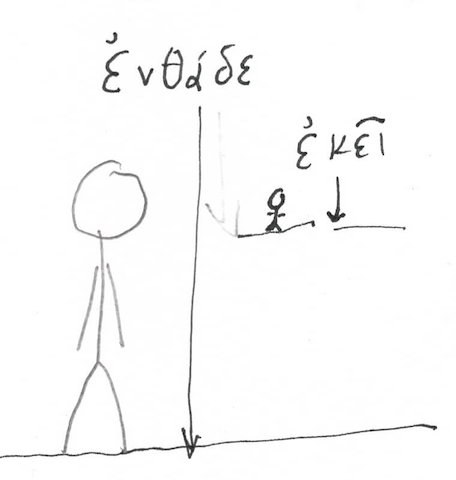 ἐνθάδε
ἐκεῖ